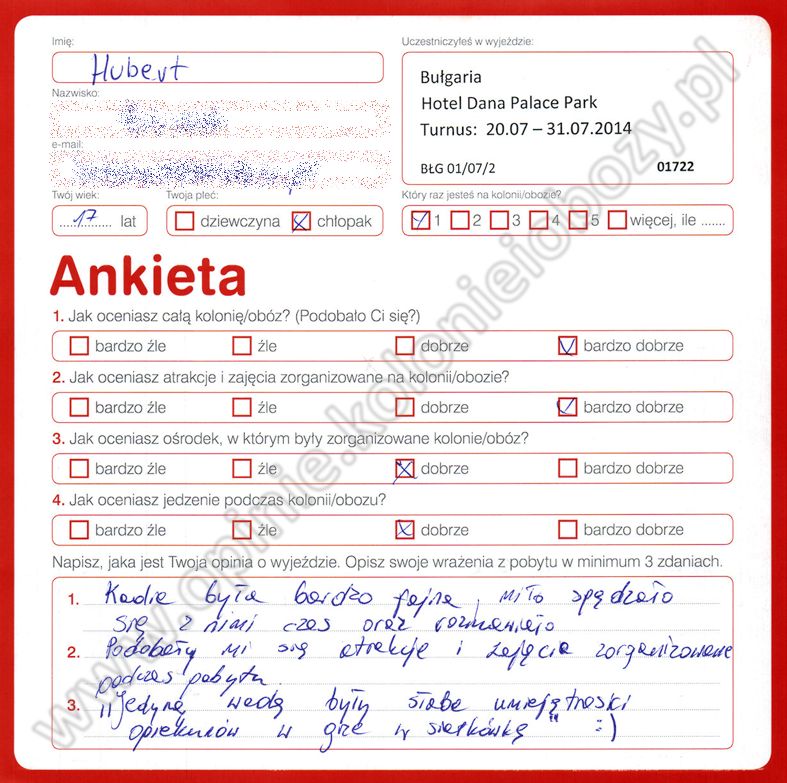 Imię:
Hubert
Nazwisko:
e-mail:
Twój wiek:
17 lat
Twoja płeć:
dziewczyna chłopak
Uczestniczyłeś w wyjeździe:
Bułgaria
Hotel Dana Palace Park
Turnus: 20.07 – 31.07.2014
BŁG 01/07/2 01722
Który raz jesteś na kolonii/obozie?
1 2 3 4 5 więcej, ile .......
Ankieta
1. Jak oceniasz całą kolonię/obóz? (Podobało Ci się?)
bardzo źle źle dobrze bardzo dobrze
2. Jak oceniasz atrakcje i zajęcia zorganizowane na kolonii/obozie?
bardzo źle źle dobrze bardzo dobrze
3. Jak oceniasz ośrodek, w którym były zorganizowane kolonie/obóz?
bardzo źle źle dobrze bardzo dobrze
4. Jak oceniasz jedzenie podczas kolonii/obozu?
bardzo źle źle dobrze bardzo dobrze
Napisz, jaka jest Twoja opinia o wyjeździe. Opisz swoje wrażenia z pobytu w minimum 3 zdaniach.
1. Kadra była bardzo fajna, miło spędzało
się z nimi czas oraz rozmawiało
2. Podobały mi się atrakcje i zajęcia zorganizowane
podczas pobytu.
3. „Jedyną wadą były słabe umiejętności
opiekunów w grze w siatkówkę" :)
www.opinie.kolonieiobozy.pl